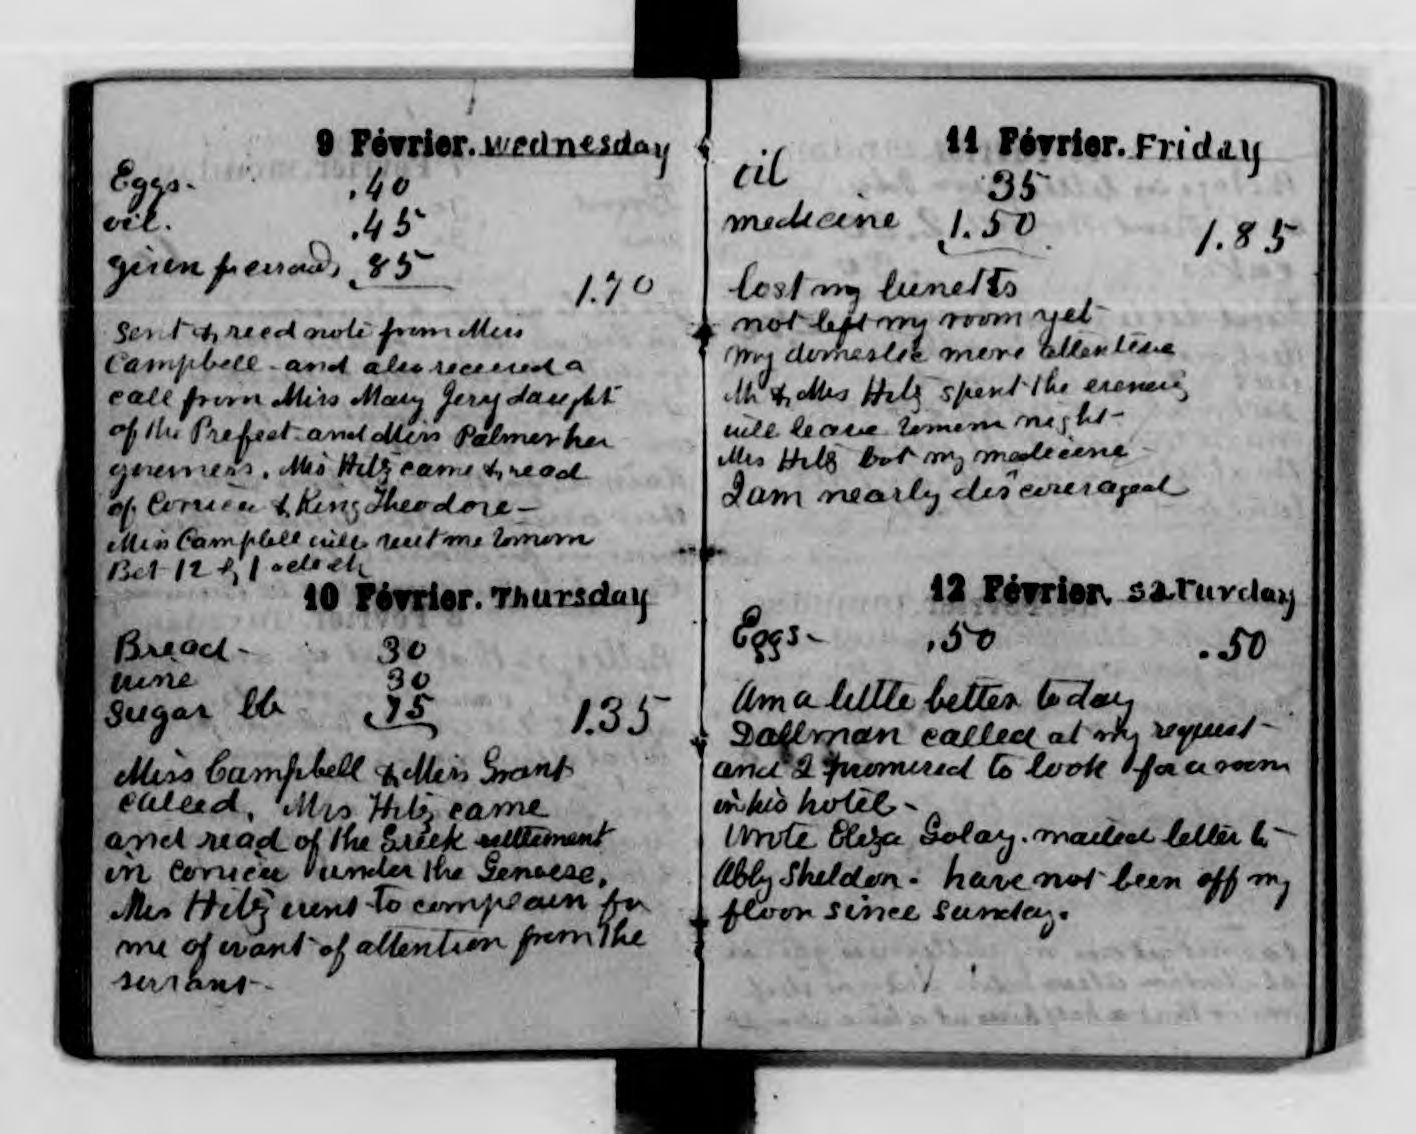 9 Février. Wednesday
Eggs- .40
oil. .45
given .85
1.70
Sent & recd note from Miss
Campbell - and also received a
call from Miss Mary Jery daught
of the Prefect and Miss Palmer her
governess. Mrs Hitz came & read
of Corsica & King Theodore -
Miss Campbell will visit me tomorrow
Bet 12 & 1 oclock
10 Février. Thursday
Bread - 30
wine 30
Sugar lb 75
1.35
Miss Campbell & Miss Grant
called. Mrs Hitz came
and read of the Greek settlement
in Corsica under the Genoese.
Mrs Hitz went to complain for
me of want of attention from the
servant -
11 Février. Friday
oil 35
medicine 1.50
1.85
lost my lunetts
not left my room yet
my domestic more attentive
Mr & Mrs Hitz spent the evening
will leave tomorrow night -
Mrs Hitz bot my medicine
I am nearly discouraged
12 Février. Saturday
Eggs - .50
.50
Am a little better today
Dallman called at my request -
and I promised to look for a room
in his hotel -
Wrote Eliza Golay. mailed letter to
Abby Sheldon. have not been off my
floor since Sunday.